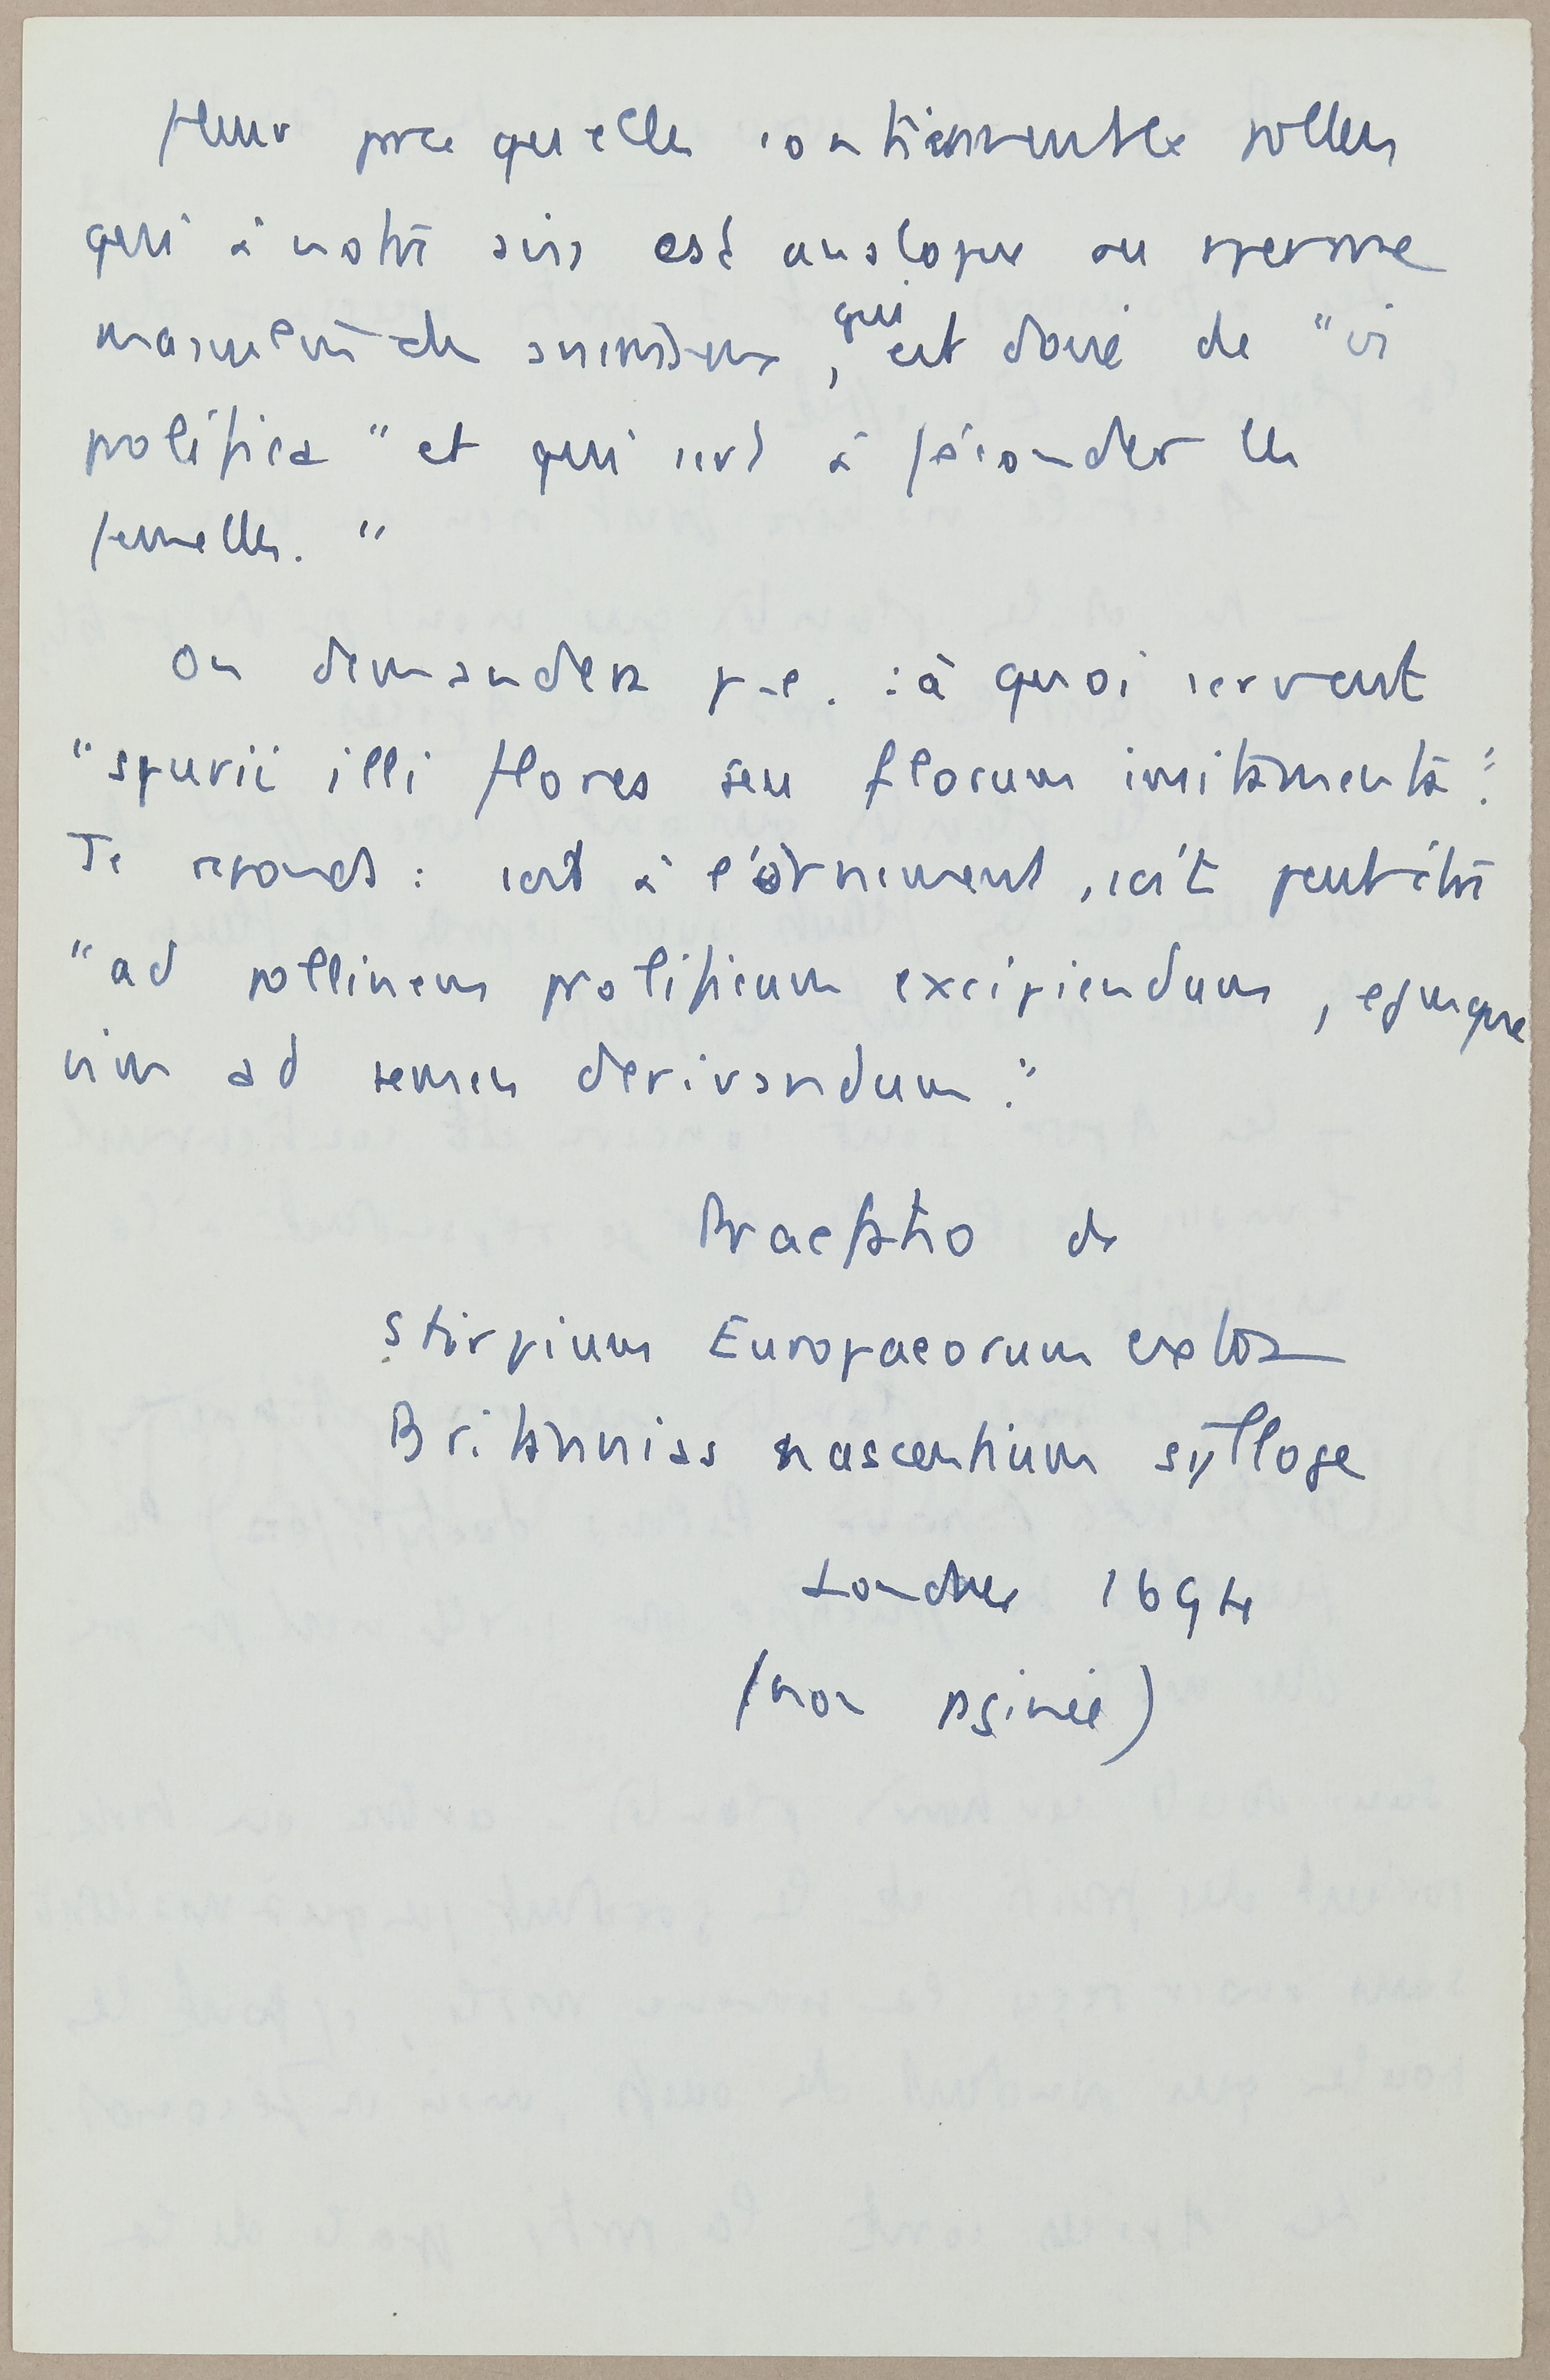 fleur parce qu'elles contiennent le pollen
qui à notre avis est analogue au sperme
masculin des animaux, qui est doué de "vi
prolifica" et qui sert à féconder les
femelles."
On demandera p-e. : à quoi servent
"spurii illi flores seu florum imitamenta".
Je réponds : soit à l'ornement, soit peut-être
"ad pollinem prolificum excipiendum, ejusque
vim ad semen derivandum."
Praefatio de
Stirpium Europaeorum extra
Britannias nascentium sylloge
Londres 1694
(non paginée)